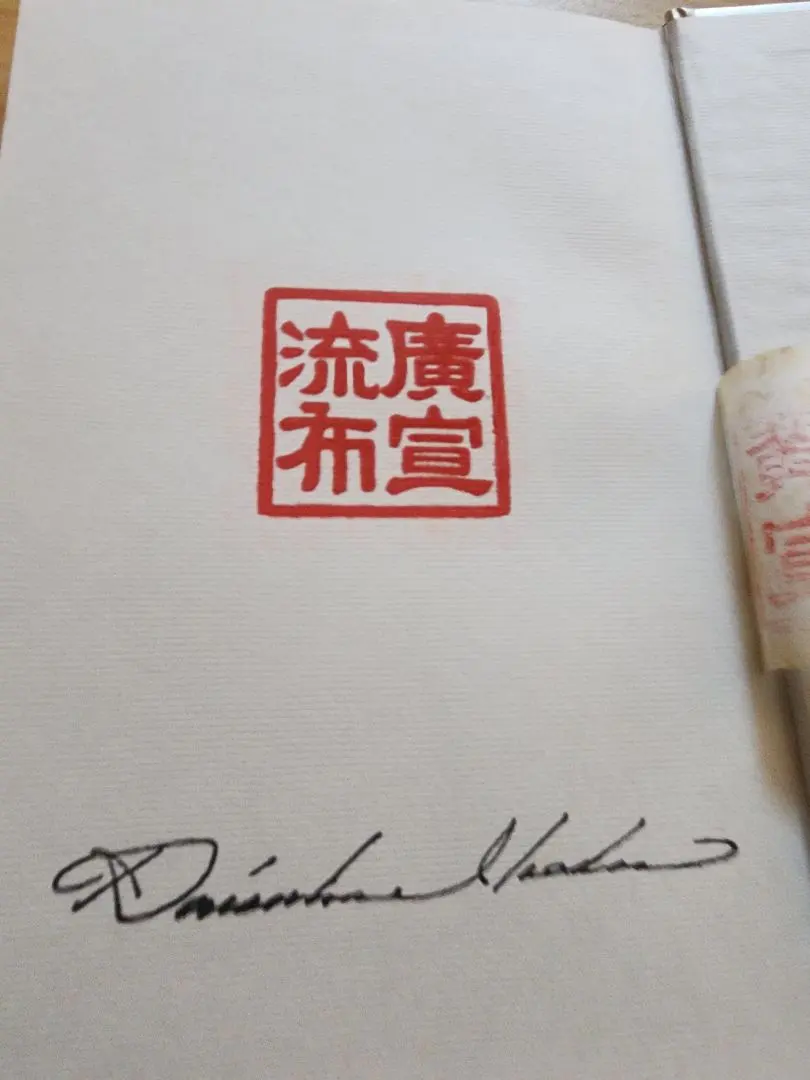 廣宣
流布
Daisaku Ikeda